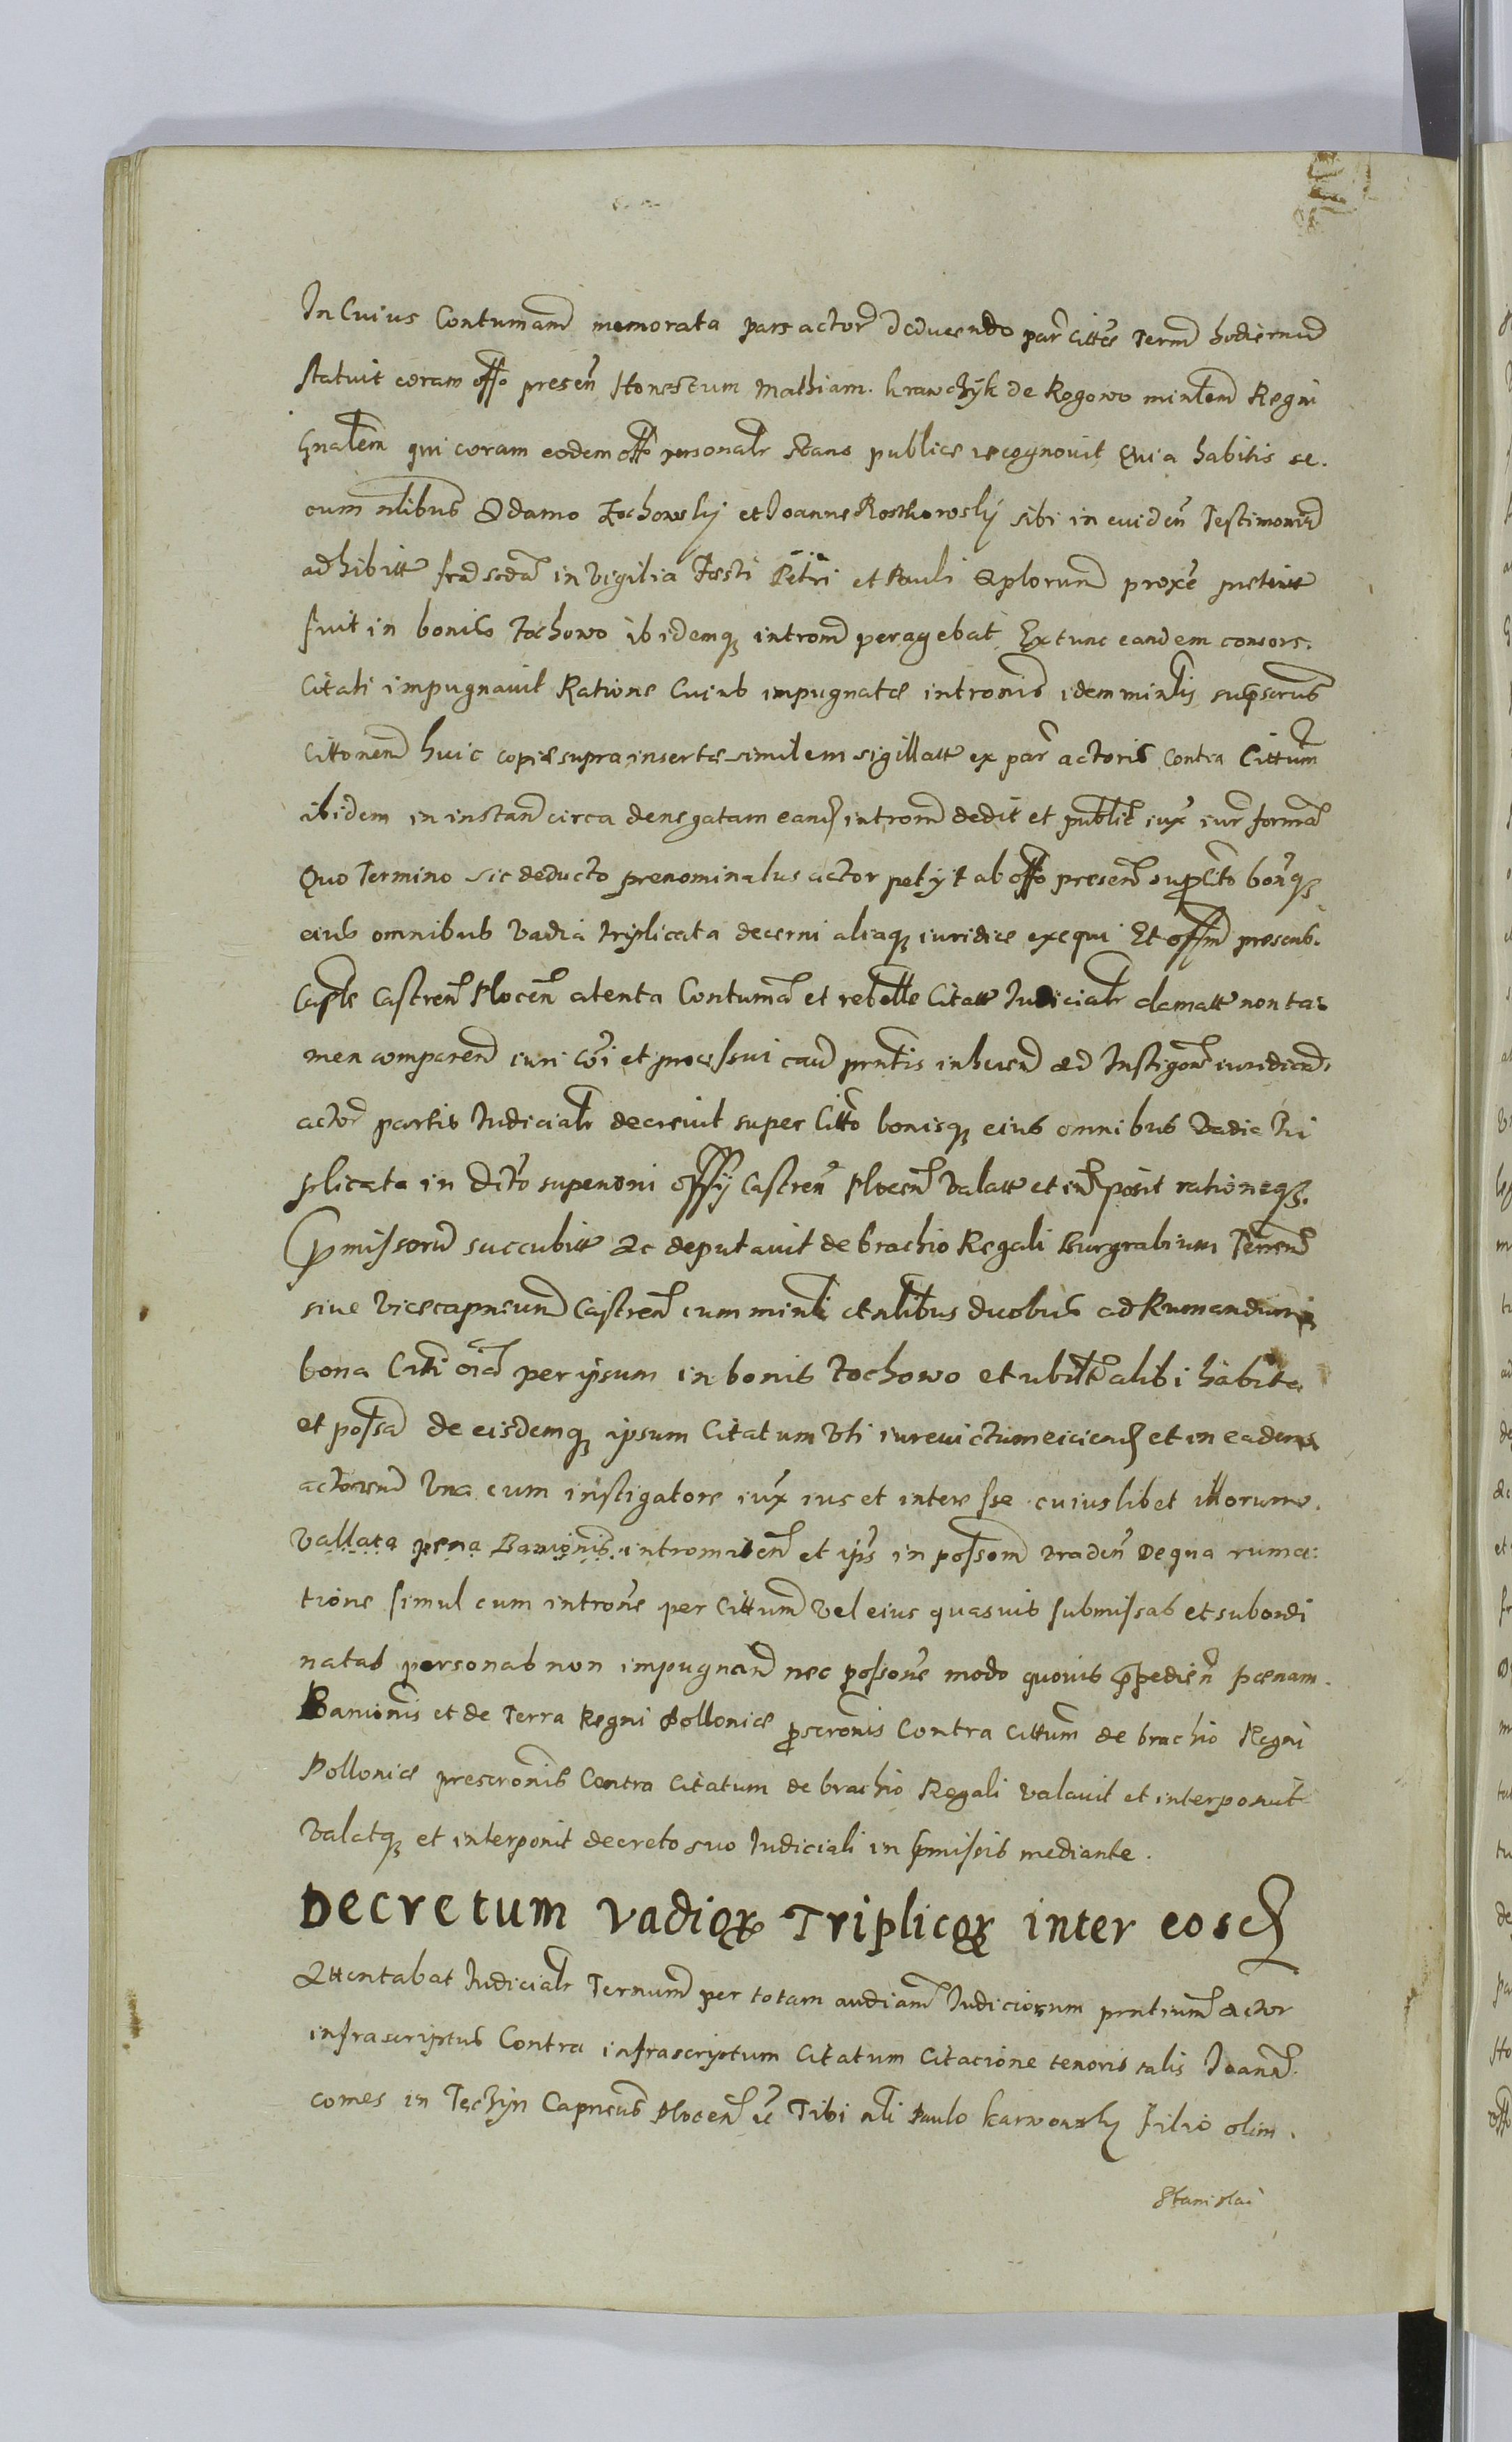 In Cuius Contumam memorata pars actor deducendo par Citte Term hodiernum
statuit coram offo presen Honestum Mathiam krawchÿk de Rogowo minlem Regni
Gnalem qui coram eodem offo personalr stans publice recognouit Quia habitis se.
cum nlibus Adamo Zochowsky et Joanne Rosthowsky sibi in euiden Testimoniu
adhibitt fra scda in Vigilia Festi Petri et Pauli Aplorum proxe pretert
fuit in bonis Zochowo ibidemq introm peragebat Extunc eandem consors.
Citati impugnauit Ratione Cuius impugnatæ intronis idem minlis supscrus
Cittonem huic copiæ supra insertæ similem sigillatt ex par actoris Contra Cittum
ibidem in instan circa denegatam eand introm dedit et public iux iur forma
Quo Termino sic deducto prenominatus actor petÿt ab offo presen sup Citto bonq
eius omnibus Vadia triplicata decerni aliaq iuridice exequi Et offm presens.
Caple Castren Plocen atenta Contuma et rebelle Citatt Judicialr clamatt non ta
men comparen iuri coi et processui cau prntis inheren ad Instigone iuridicam
actor partis Judicialr decreuit super Citto bonisq eius omnibus Vadia tri
plicata in dicto superoni offÿ Castren Plocen Valatt et in posit rationeq.
Pmissoru succubitt Ac deputauit de brachio Regali Burgrabium Terren
siue Vicecapneum Castren cum minli et nlibus duobus ad Rumandum
bona Citti oia per ipsum in bonis Zochowo et ubilt alibi habita
et possa de eisdemq ipsum Citatum Uti iureuictum eiciend et in eadem
actoreum Vna cum instigatore iux ius et interesse cuiuslibet illorum.
Vallata pena Banionis intromiten et ips in possom traden De qua ruma
tione simul cum introne per Cittum Vel eius quasuis submissas et subordi
natas personas non impugnan nec possone modo quouis ppedien pænam.
Banionis et de Terra Regni Polloniæ pscronis Contra Cittum de brachio Regni
Polloniæ prescronis Contra Citatum de brachio Regali Valauit et interposuit
Valatq et interponit decreto suo Judiciali in pmissis mediante.
Decretum Vadior Triplicor inter eosd
Attentabat Judicialr Ternum per totam audiam Judiciorum prntium actor
infrascriptus Contra infrascriptum Citatum Citacione tenoris talis Joann
comes in Teczyn Capneus Plocen ec Tibi nli Paulo karwowsky Filio olim.
Stanislai